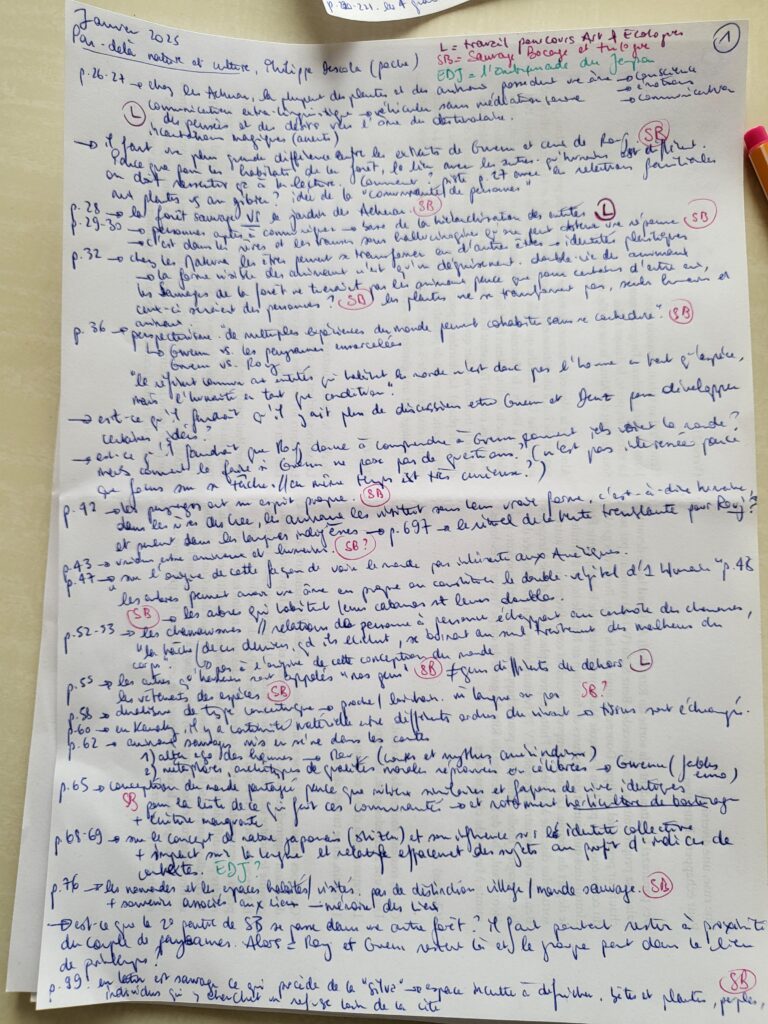 Janvier 2025
Par-delà nature et culture, Philippe Descola (poche)
L = travail parcours Art & Écologies
SB = Sauvage Bocage et trilogie
EDJ = l'entremade du Jeyran
1
p.26-27 → chez les Achuar, la plupart des plantes et des animaux possèdent une âme → conscience
→ émotions
→ communication
communication extra-linguistique → véhicule sans médiation sonore
des pensées et des désirs vers l'âme du destinataire.
L incantations magiques (anents)
→ il faut une plus grande différence entre les extraits de Gwenn et ceux de Roy. SB
Parce que pour les habitants de la forêt, le lien avec les autres qu'humains est différent.
on doit ressentir ça à la lecture. Comment ? piste p.27 avec la relations familiales
aux plantes vs au gibier ? idée de la "communauté de personnes"
p.28 → la forêt sauvage VS le jardin des Achuar. SB
p.29-30 → personnes aptes à communiquer → base de la hiérarchisation des entités L
→ c'est dans les rêves et les transes sous hallucinogènes qu'on peut obtenir une réponse SB
p.32 → chez les Makuna les êtres peuvent se transformer en d'autres êtres → identités plastiques
→ la forme visible des animaux n'est qu'un déguisement. double-vie des animaux
les Sauvages de la forêt ne tueraient pas les animaux parce que pour certains d'entre eux,
ceux-ci seraient des personnes ? SB les plantes ne se transforment pas, seuls humains et
animaux
p.36 → perspectivisme "de multiples expériences du monde peuvent cohabiter sans se contredire". SB
↳ Gwenn vs. les paysannes ensorcelées
Gwenn vs. Roy
"le référent commun aux entités qui habitent le monde n'est donc pas l'homme en tant qu'espèce,
mais l'humanité en tant que condition".
→ est-ce qu'il faudrait qu'il y ait plus de discussions entre Gwenn et pour développer
certaines idées.
→ est-ce qu'il faudrait que Roy donne à comprendre à Gwenn comment iels voient le monde ?
mais comment le faire si Gwenn ne pose pas de questions ? (n'est pas intéressée parce
que focus sur sa tâche // en même temps est très curieuse ?)
p.42 → les paysages ont un esprit propre. SB
dans les rêves des Cree, les animaux les visitent sous leur vraie forme, c'est-à-dire humaine,
et parlent dans les langues indigènes → p.697 → le rituel de la tente tremblante pour Roy ?
p.43 → union entre animaux et humains. SB ?
p.47 → "sur l'origine de cette façon de voir le monde pas inhérente aux Amériques.
"les arbres peuvent avoir une âme en propre ou constituer le double végétal d'1 humain" p.48
SB → les arbres qui habitent leurs cabanes et leurs doubles.
p.52-53 → les chamanismes // relations de personne à personne échappant au contrôle des chamanes,
"la tâche de ces derniers, qd ils existent, se bornant au seul traitement des malheurs du
corps". ↳ pas à l'origine de cette conception du monde
p.55 → les autres qu'humains sont appelés "nos gens" SB ≠ gens différents du dehors L
les vêtements des espèces SB
p.58 → dualisme de type concentrique → proche/lointain. m langue ou pas SB ?
p.60 → en Kanaky, il y a continuité matérielle entre différents ordres du vivant → tissus sont échangés.
p.62 → animaux sauvages mis en scène dans les contes
1) alter ego des hommes → Roy (contes et mythes amérindiens)
2) métaphores, archétypes de qualités morales réprouvées ou célébrées → Gwenn (fables euro)
p.65 → conception du monde partagée parce que milieux similaires et façons de vivre identiques
SB pour la liste de ce qui fait ces communautés → et notamment horticulture de bouturage
+ écriture manquante
p.68-69 → sur le concept de nature japonais (shizen) et son influence sur l'identité collective
+ impact sur la langue et relatif effacement des sujets au profit d'indices de
contextes. EDJ ?
p.76 → les nomades et les espaces habités/visités. pas de distinction village/monde sauvage. SB
+ souvenirs associés aux lieux → mémoire des lieux
→ est-ce que la 2e partie de SB se passe dans une autre forêt ? Il faut pourtant rester à proximité
du couple de paysannes. Alors = Roy et Gwenn restent là et le groupe part dans le lieu
de printemps ?
p.99 : en latin est sauvage ce qui procède de la "silva" → espace inculte à défricher, bêtes et plantes, peuples, SB
individus qui y cherchent un refuge loin de la cité